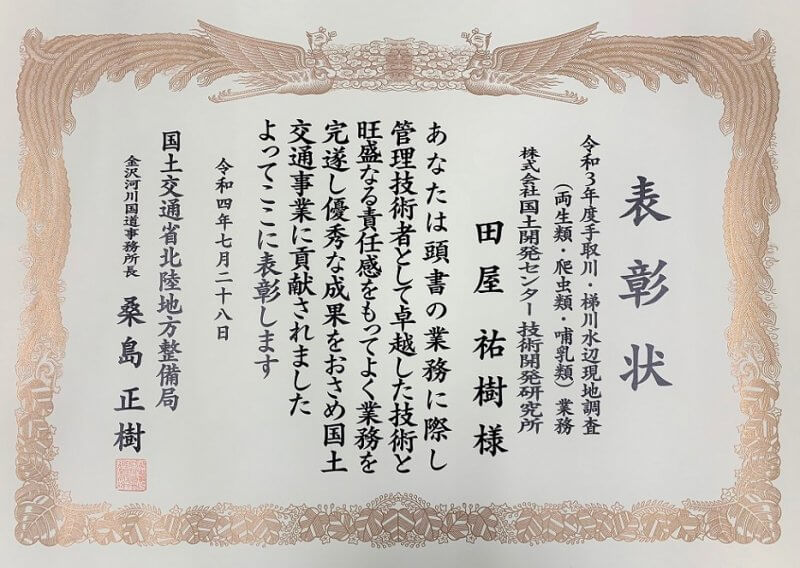 表彰状
令和3年度手取川・梯川水辺現地調査
(両生類・爬虫類・哺乳類)業務
株式会社国土開発センター技術開発研究所
田屋祐樹様
あなたは頭書の業務に際し
管理技術者として卓越した技術と
旺盛なる責任感をもってよく業務を
完遂し優秀な成果をおさめ国土
交通事業に貢献されました
よってここに表彰します
令和四年七月二十八日
国土交通省北陸地方整備局
金沢河川国道事務所長 桑島正樹